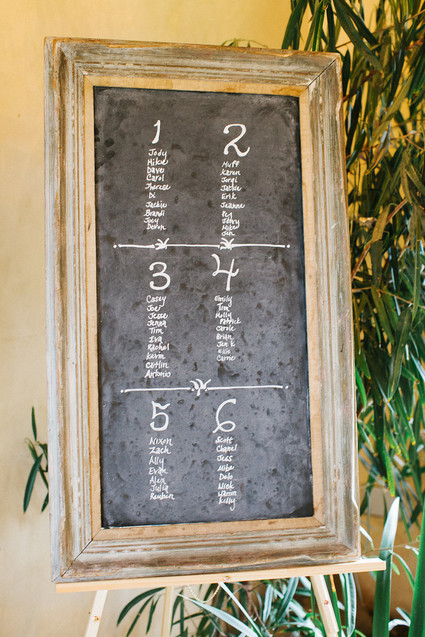 1
Jody
Mikie
Dave
Carol
Therese
Di
Jackie
Brandi
Joey
Devon
2
Muff
Karen
Jorgi
Jackie
Erik
Jeanne
Peg
Jenny
Mike
Jen
3
Casey
Joe
Jesse
Jenna
Tim
Iva
Rachel
Kevin
Caitlin
Antonio
4
Emily
Tim
Holly
Patrick
Carole
Brian
Jen K
Ellie
Carrie
5
Nixon
Zach
Ally
Evan
Alex
Julia
Reuben
6
Scott
Chanel
Jess
Mike
Dolo
Nick
Kelly